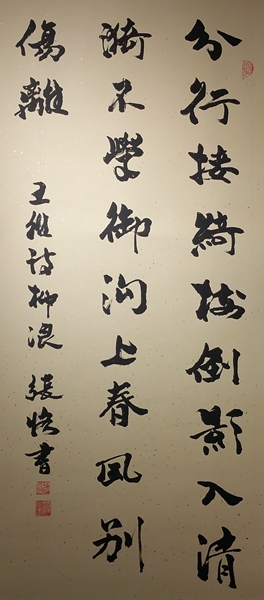 分行接綺樹倒影入清
漪不學御沟上春風别
傷離
王維詩柳浪 張 書